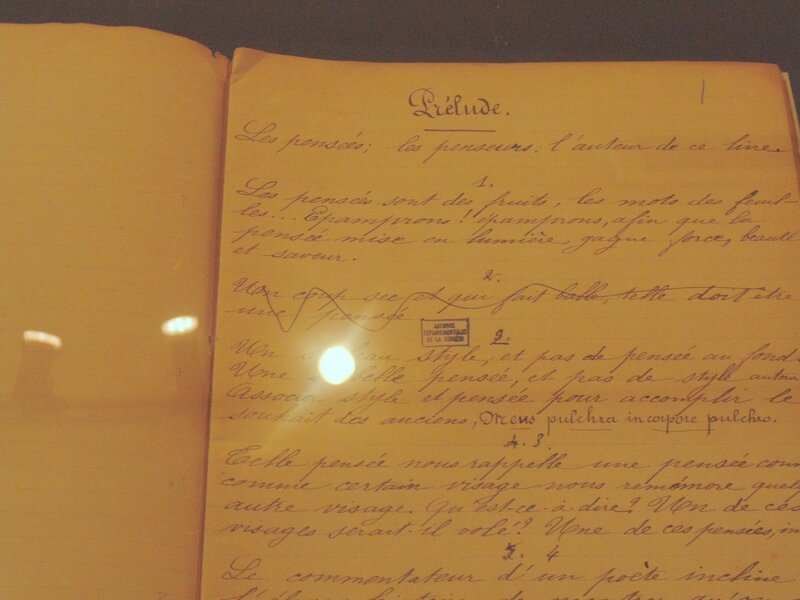 1
Prélude.
Les pensées; les penseurs: l'auteur de ce livre.
1.
Les pensées sont des fruits, les mots des feuil-
les... Epamprons! epamprons, afin que la
pensée mise en lumière, gagne force, beauté
et saveur.
2.
Un coup sec et qui fait balle, telle doit être
une pensée
ARCHIVES
DÉPARTEMENTALES
DE LA CORRÈZE
2.
Un beau style, et pas de pensée au fond
Une belle pensée, et pas de style autour
Associer style et pensée pour accomplir le
souhait des anciens, Mens pulchra in corpore pulchro.
4. 3
Telle pensée nous rappelle une pensée
comme certain visage nous remémore quel
autre visage. Qu'est-ce à dire? Un de ces
visages serait-il volé? Une de ces pensées, im
5. 4
Le commentateur d'un poète incline